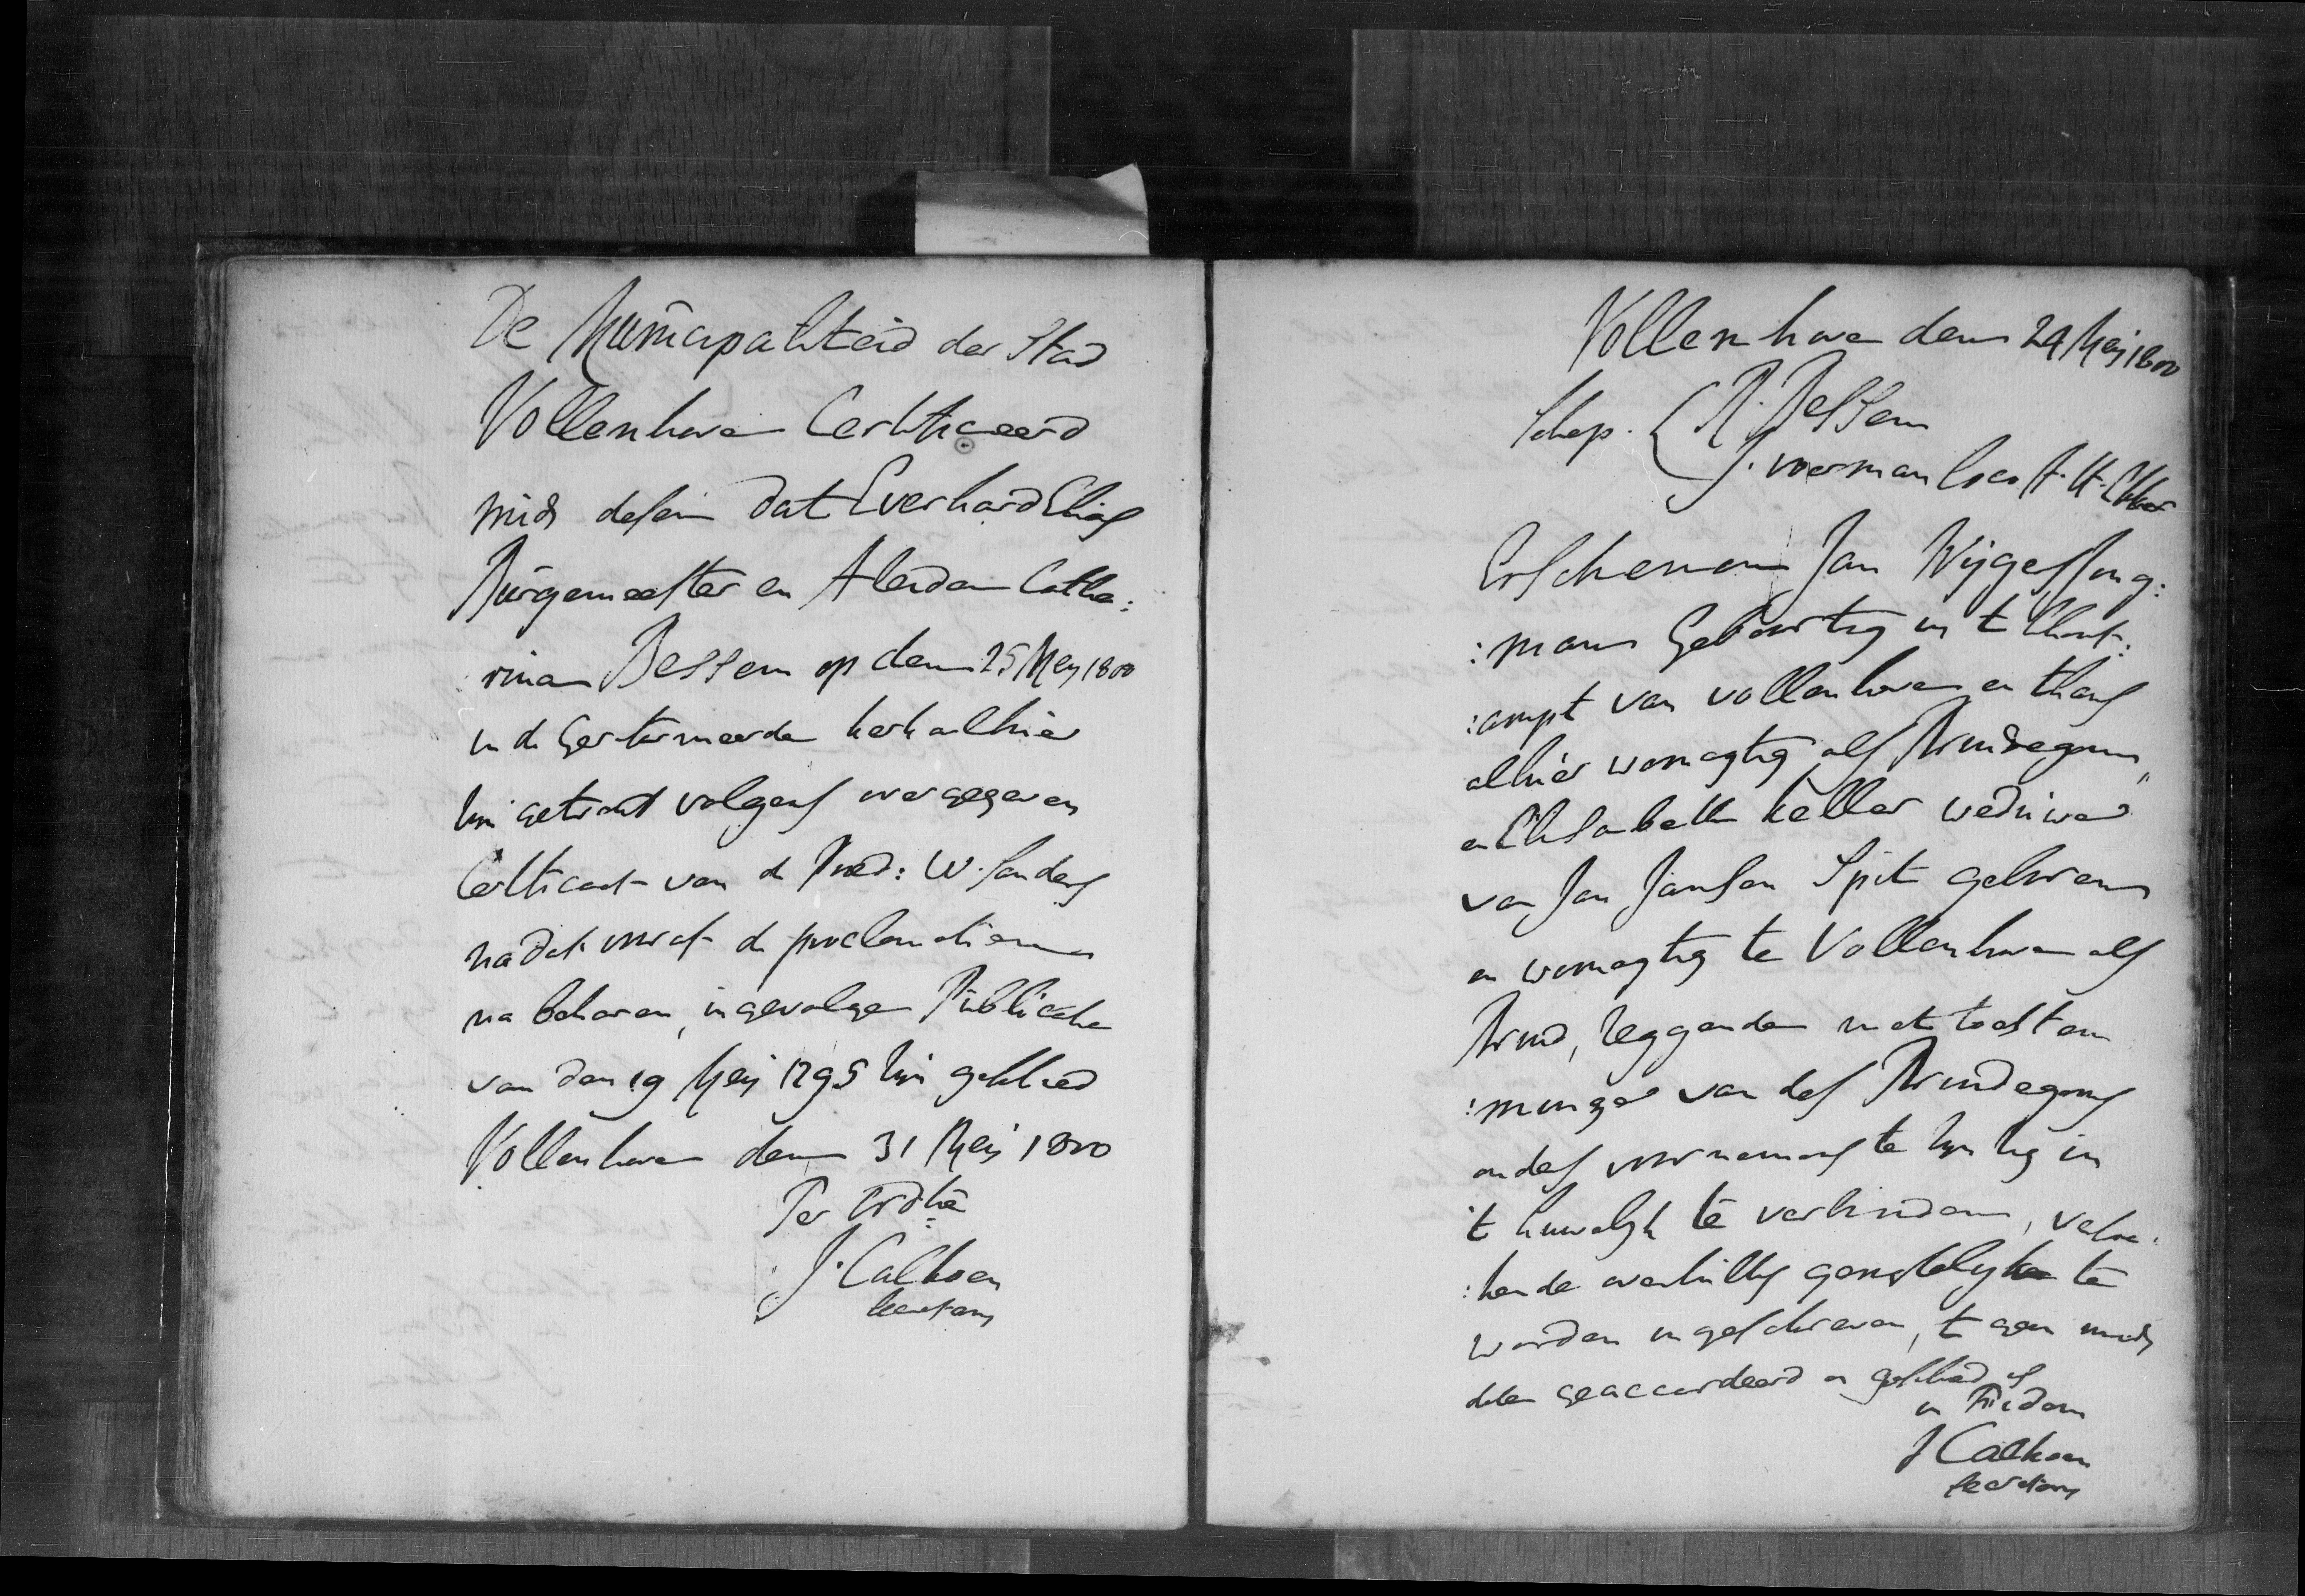 De Municipaliteid der Stad
Vollenhove Certificeerd
mids desen dat Everhard Elias
Burgemeester en Aleida Catha:
:rina Bessem op den 25 Meij 1800
in de Gereformeerde kerk alhier
zijn getrout volgens overgegeven
Certificaat van de Pred: W. Sanders
nadat vooraf de proclamatien
na behoren, ingevolge Publicatie
van den 19 Meij 1795 zijn geschied
Vollenhove den 31 Meij 1800
Ter Ordtie
J. Calkoen
secretaris
Vollenhove den 29 Meij 1800
Schep. R. Bessem
J. voerman loco A. H.
Erschenen Jan Wijgers Jong:
:man Geboortig in 't Schout:
:ampt van vollenhove en thans
alhier woonagtig als Bruidegom
en Elisabeth Keller weduwe
van Jan Jansen Spit geboren
en woonagtig te Vollenhove als
Bruid, zeggende met toestem
:minge van des Bruidegoms
ouders voornemens te zijn zig in
't huwelijk te verbinden, versoe:
:kende overzulks gerigtelyke te
worden ingeschreven, 't geen mids
desen geaccordeerd en geschied is
in fidem
J Calkoen
secretaris